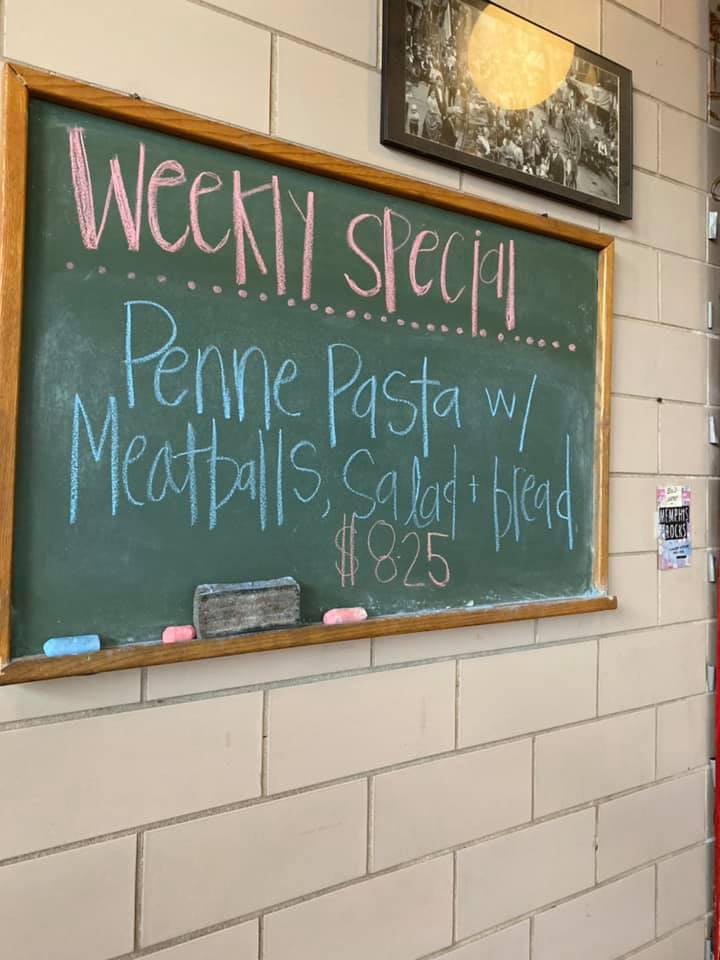 Weekly Special
Penne Pasta w/
Meatballs, Salad + bread
$8.25
MEMPHIS
ROCKS